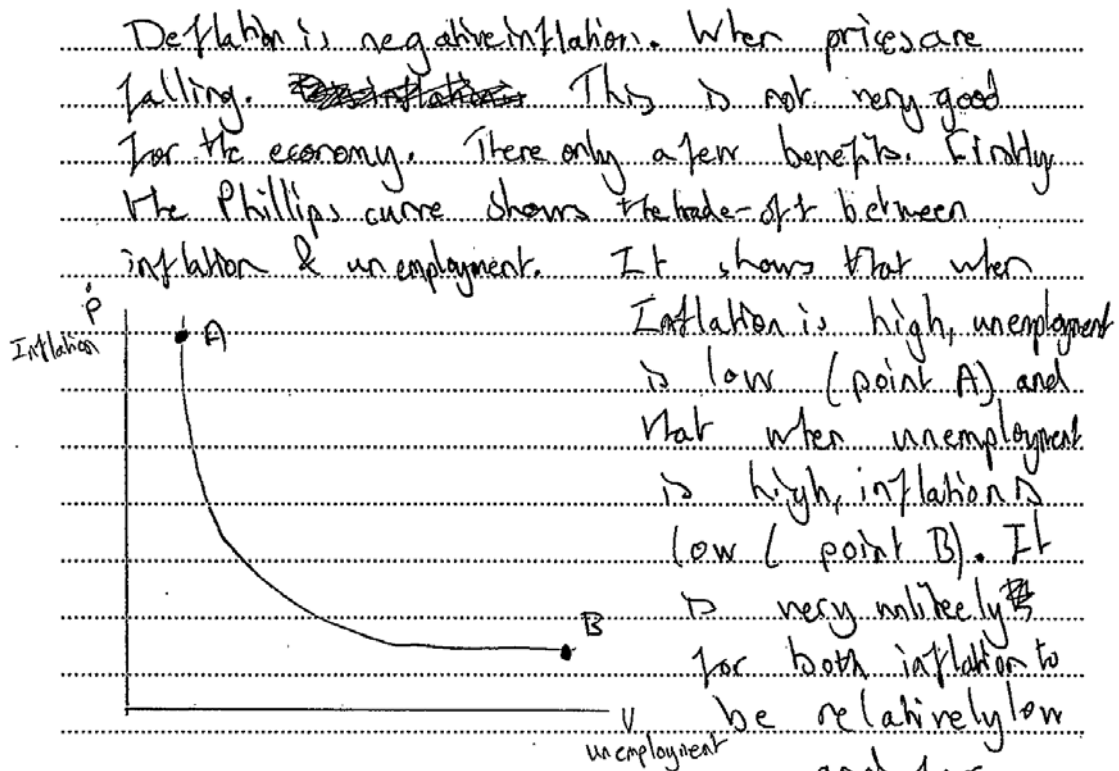 Deflation is negative inflation. When prices are
falling. This is not very good
for the economy. There only a few benefits. Firstly
the Phillips curve shows the trade-off between
inflation & unemployment. It shows that when
Ṗ
Inflation
A
Inflation is high, unemployment
is low (point A) and
that when unemployment
is high, inflation is
low (point B). It
is very unlikely
B
for both inflation to
be relatively low
U
unemployment
and for